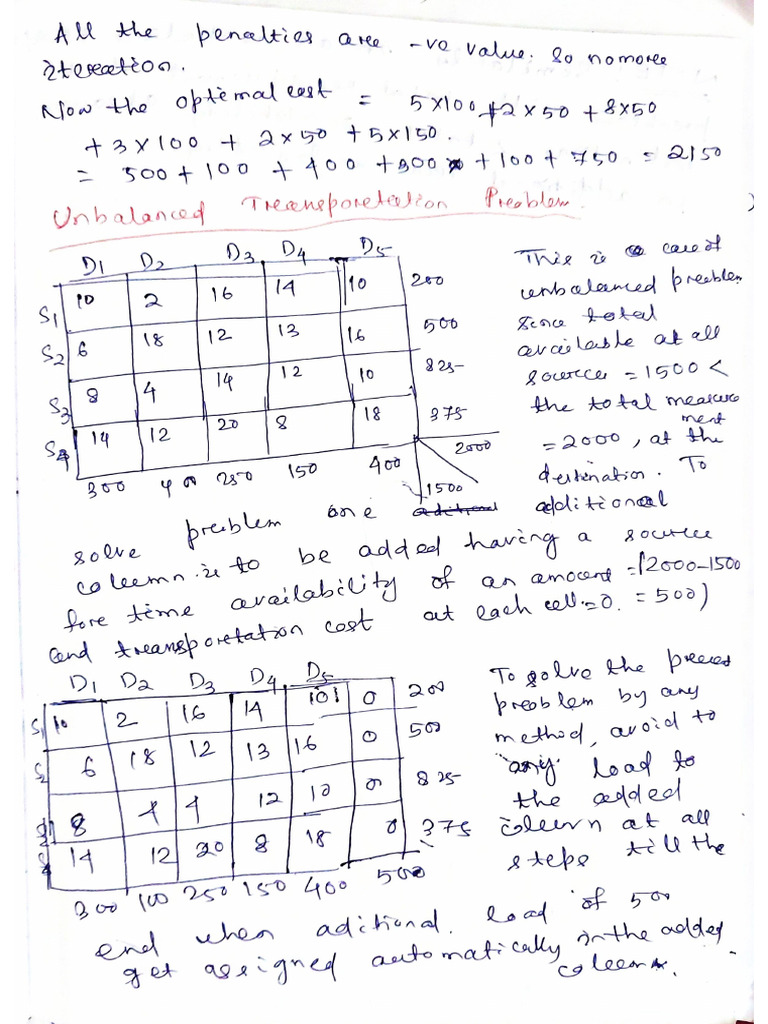 All the penalties are -ve value. So no more
iteration.
Now the optimal cost = 5×100 + 2×50 + 8×50
+ 3×100 + 2×50 + 5×150.
= 500 + 100 + 400 + 300 + 100 + 750 = 2150
Unbalanced Transportation Problem.
D1 D2 D3 D4 D5
S1 10 2 16 14 10 200
S2 6 18 12 13 16 500
S3 8 4 14 12 10 825
S4 14 12 20 8 18 375
300 400 250 150 400 1500 2000
This is a case of
unbalanced problem
since total
available at all
source = 1500 <
the total measure
ment
= 2000, at the
destination. To
solve problem one additional
column is to be added having a source
fore time availability of an amount = (2000-1500
and transportation cost at each cell = 0. = 500)
D1 D2 D3 D4 D5
S1 10 2 16 14 10 0 200
S2 6 18 12 13 16 0 500
S3 8 4 4 12 10 0 825
S4 14 12 20 8 18 0 375
300 100 250 150 400 500
To solve the
problem by any
method, avoid to
any load to
the added
column at all
steps till the
end when aditional load of 500
get assigned automatically in the added
column.